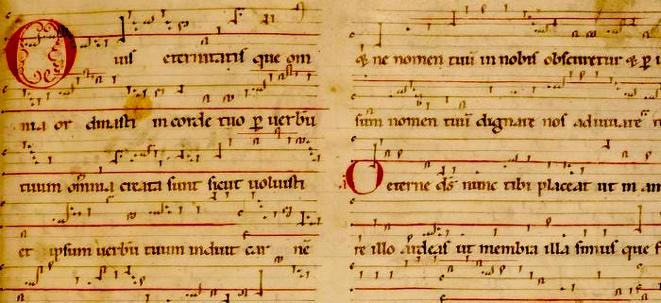 O uis eternitatis que om
nia or dinasti in corde tuo p̲ uerbū
tuum om̄nia creata sunt sicut uoluisti
et ipsum uerbū tuum induit car nē
ne nomen tuū in nobis obscuretur & p̲
sum nomen tuū dignare nos adiuuare
O eterne ds̄ nunc tibi placeat ut in am
re illo ardeas ut membra illa simus que f